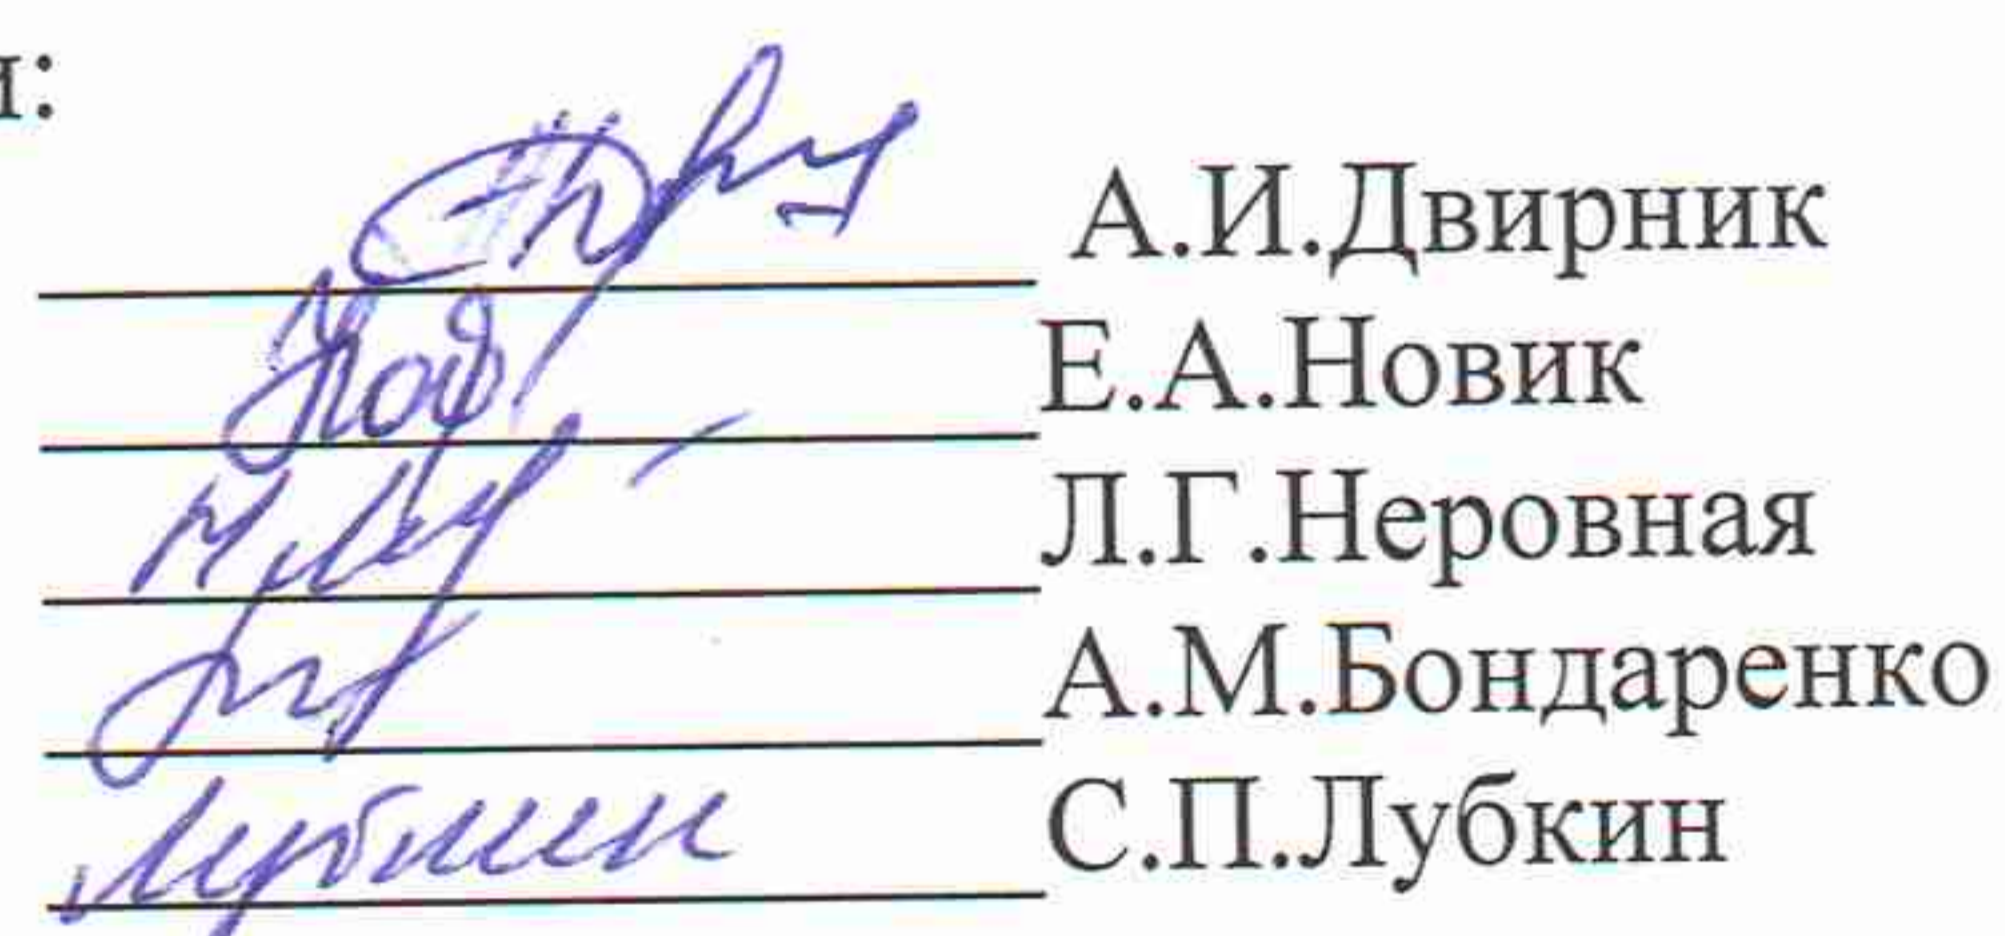 и:
А.И.Двирник
Е.А.Новик
Л.Г.Неровная
А.М.Бондаренко
Лубкин С.П.Лубкин